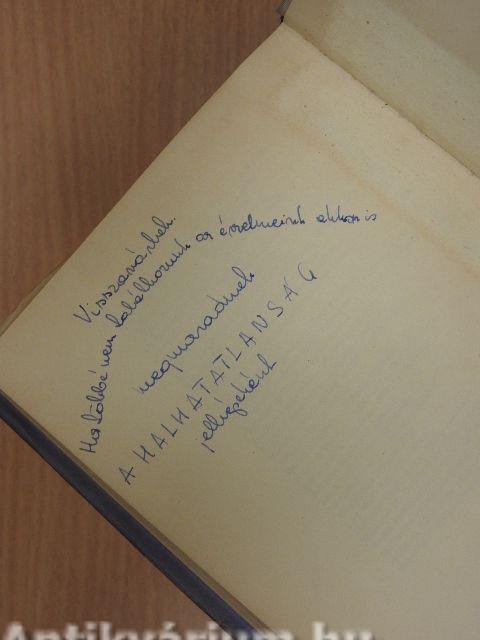 Visszavárlak.
Ha többé nem találkozunk az érzelmeink akkor is
megmaradnak
A HALHATATLANSÁG
jelképeként
Antikvárium.hu